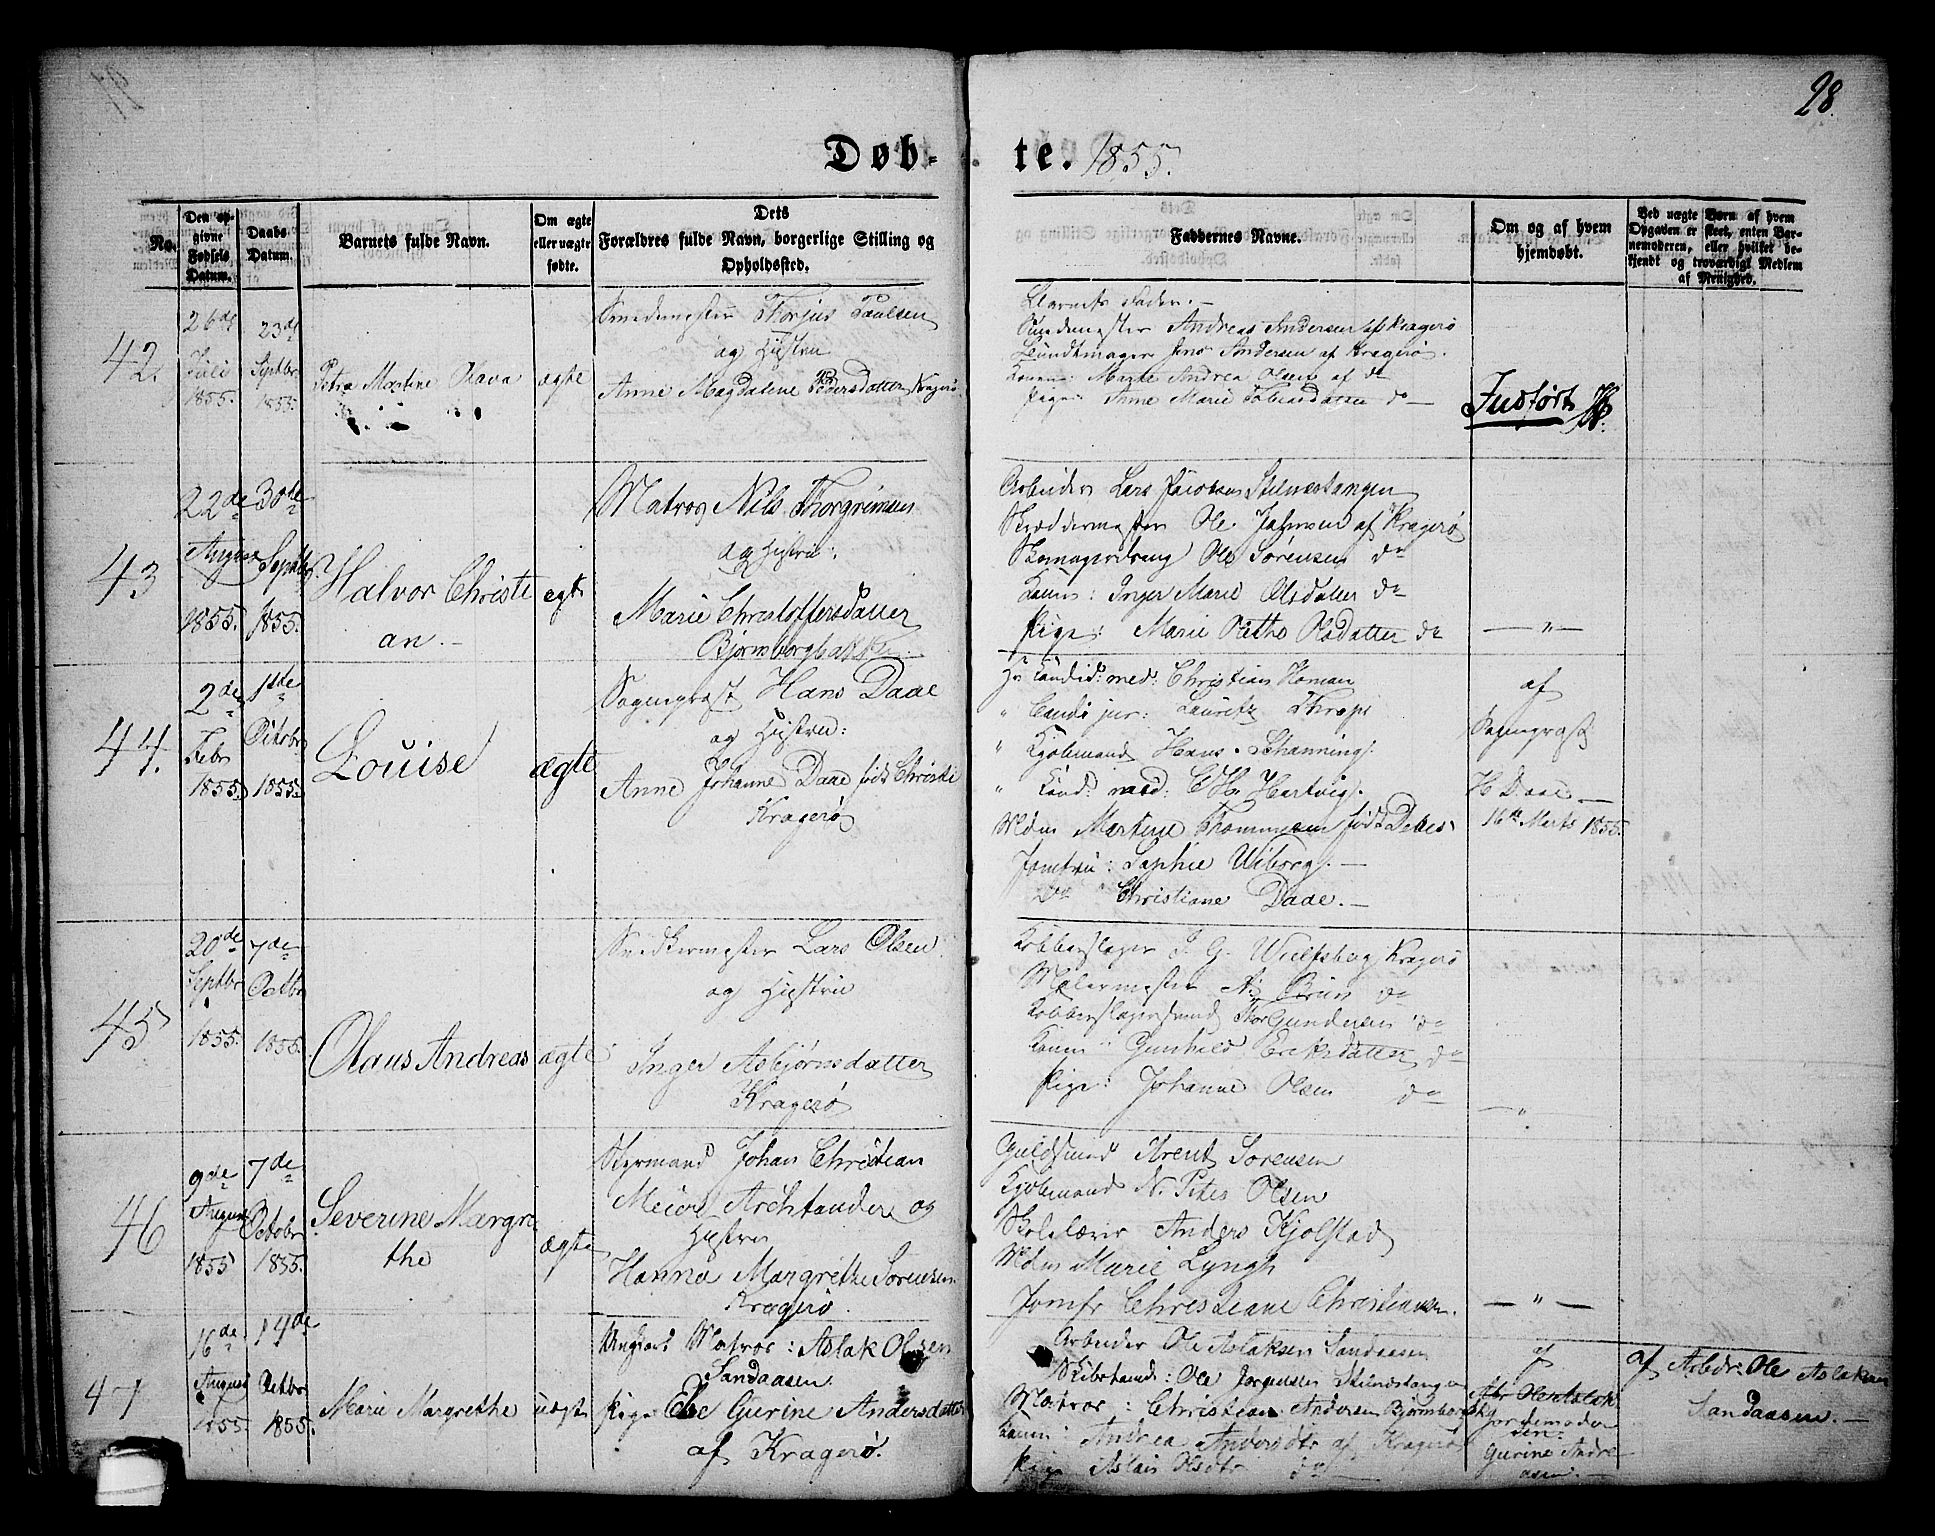 28.
Døb- te. 1855.
No.
Den op-
givne
Fødsels
Datum.
Daabs
Datum.
Barnets fulde Navn.
Om ægte
eller uægte
fødte.
Dets
Forældres fulde Navn, borgerlige Stilling og
Opholdssted.
Faddernes Navne.
Om og af hvem
hjemdøbt.
Ved uægte Børn af hvem
Opgaven er skeet, enten Bar-
nemoderen, eller hvilket be-
kjendt og troværdigt Medlem
af Menighed.
42.
26de
Juli
1855.
23de
Septbr
1855.
Petra Martine Olava
ægte
Smedemester Thorjus Paulsen
og Hustru
Anne Magdalene Pedersdatter Kragerø.
Barnets Fader.
Smedemester Andreas Andersen af Kragerø
Bundtmager Jens Andersen af Kragerø.
Konen: Marte Andrea Olsen af do
Pige: Anne Marie Tobiasdatter do
Indført
43
22de
August
1855.
30te
Septbr
1855.
Halvor Christi
an.
ægte
Matros Nils Thorgrimsen
og Hustru:
Marie Christoffersdatter
Bjørnsborgbakken.
Arbeider Lars Jacobsen Stilnestangen
Skreddermester Ole Jahnsen af Kragerø
Skomagerdreng Ole Sørensen do
Konen: Inger Marie Olsdatter do
Pige: Marie Olsdatter do
— " —
44.
2de
Febr
1855.
1ste
Octobr
1855.
Louise
ægte
Sogneprest Hans Daae
og Hustru:
Anne Johanne Daae født Christi
Kragerø
Hr Candid: med: Christian Homan
" Candi jur: Lauritz Thrap
" Kjøbmand Hans Schanning.
" Cand: med: C.H. Hartvig.
Mdm Martine Thommesen født Debes
Jomfru: Sophie Wiborg. —
Do Christiane Daae. —
af
Sogneprest
H Daae —
16de Marts 1855.
45
20de
Septbr
1855.
7de
Octbr
1855.
Olaus Andreas
ægte
Snedkermester Lars Olsen
og Hustru
Inger Asbjørnsdatter
Kragerø
Kobberslager J. G. Wulfsberg Kragerø
Malermester A: Bruu do
Kobberslagersvend Thor Gundersen do
Konen Gunhild Eriksdatter do
Pige: Johanne Olsen do
— "
46
9de
August
1855
7de
Octobr
1855.
Severine Margre
the
ægte
Styrmand Johan Christian
Meier Archtander og
Hustru
Hanna Margrethe Sorensen
Kragerø.
Guldsmed Arent Sorensen
Kjøbmand N. Peter Olsen
Skolelærer Anders Kjolstad
Mdm Marie Lyngh
Jomfr Christiane Christiansen.
— " —
47
16de
August
1855
14de
Octbr
1855.
Marie Margrethe
uægt
Ungkarl Matros: Aslak Olsen
Sandaasen
Pige Else Gurine Andersdatter
af Kragerø.
Arbeider Ole Aslaksen Sandaasen
Skibstømd: Ole Jørgensen Stilnestangen
Matros: Christian Andersen Bjørnsborgbk
Konen: Andrea Andersdtr af Kragerø
Pige Aslais Olsdtr do —
af
Jordemoderen:
Gurine Andre
asen. —
af Arbdr: Ole Aslaksen
Sandaasen. —